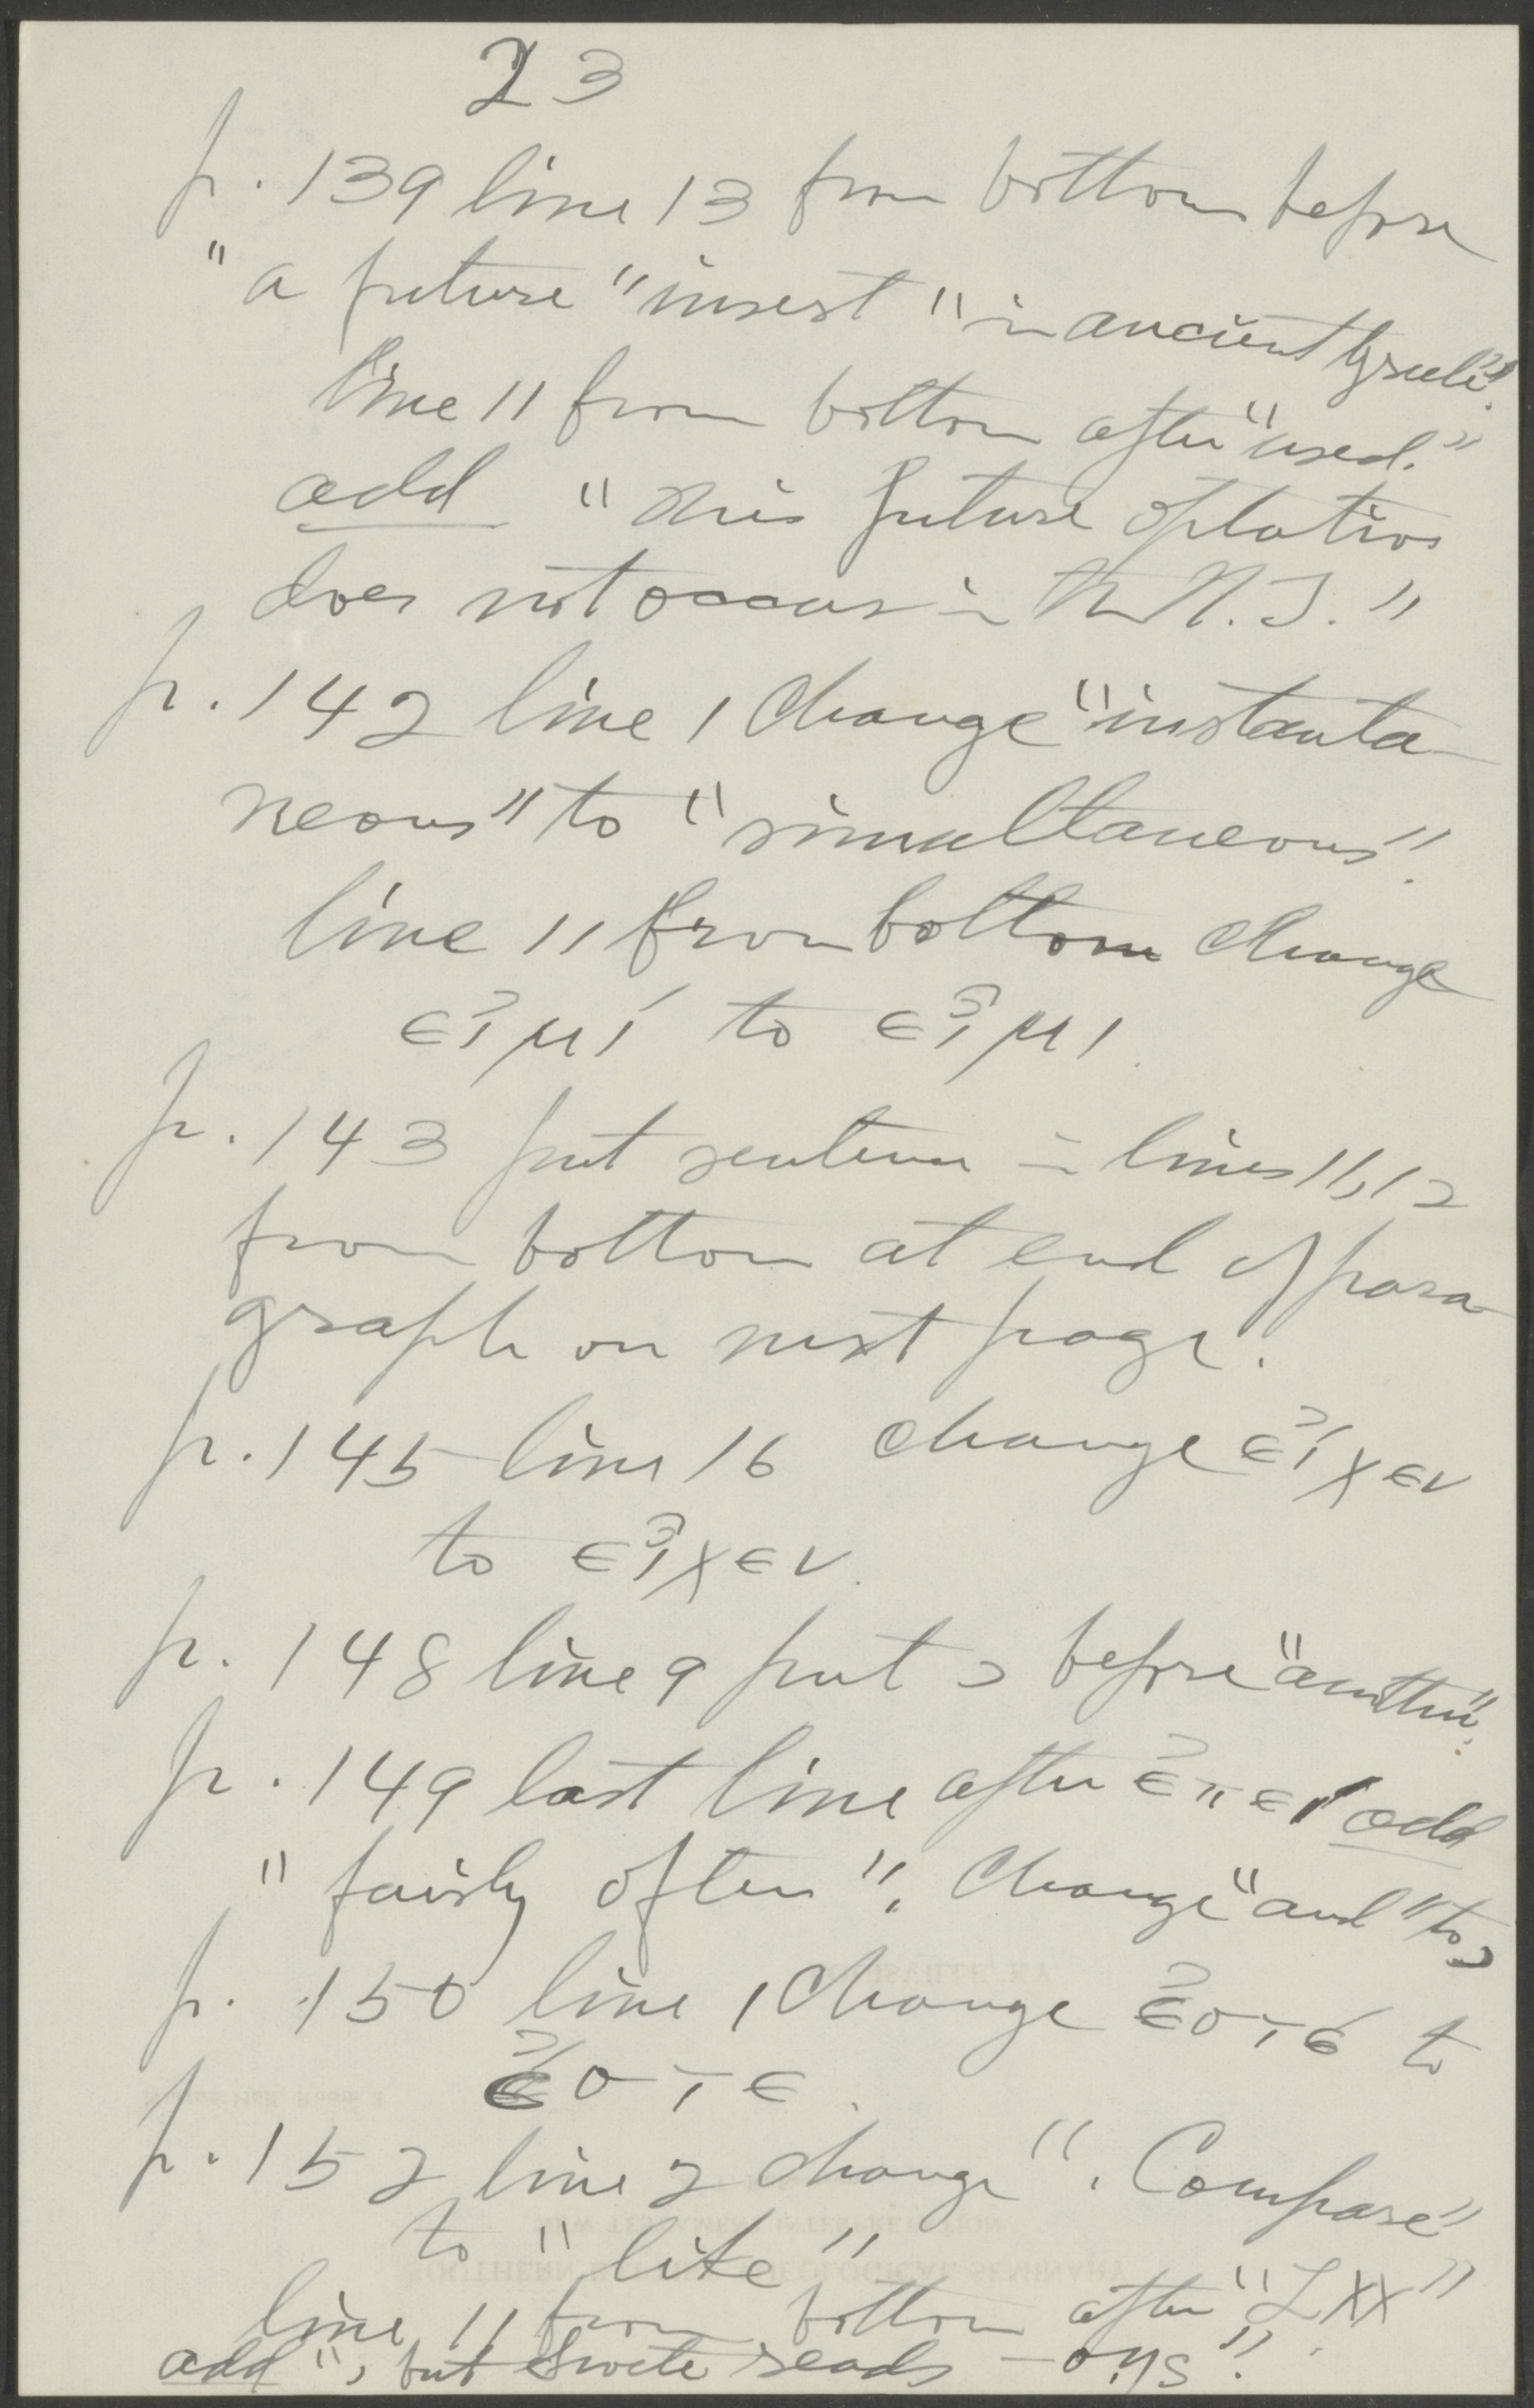 23
p. 139 line 13 from bottom before
"a future" insert "in ancient Greek".
line 11 from bottom after "used."
add "This future optative
does not occur in the N. T."
p. 142 line 1 change "instanta
neous" to "simultaneous".
line 11 from bottom change
εἰμί to εἶμι.
p. 143 put sentence in lines 11, 12
from bottom at end of para
graph on next page.
p. 145 line 16 change εἴχεν
to εἶχεν.
p. 148 line 9 put , before "another".
p. 149 last line after ἐπεί add
"fairly often". Change "and" to ,
p. 150 line 1 change ἐστέ to
ἔστε.
p. 152 line 2 change ". Compare"
to "like"
line 11 from bottom after "LXX"
add ", but Swete reads -σῃς".